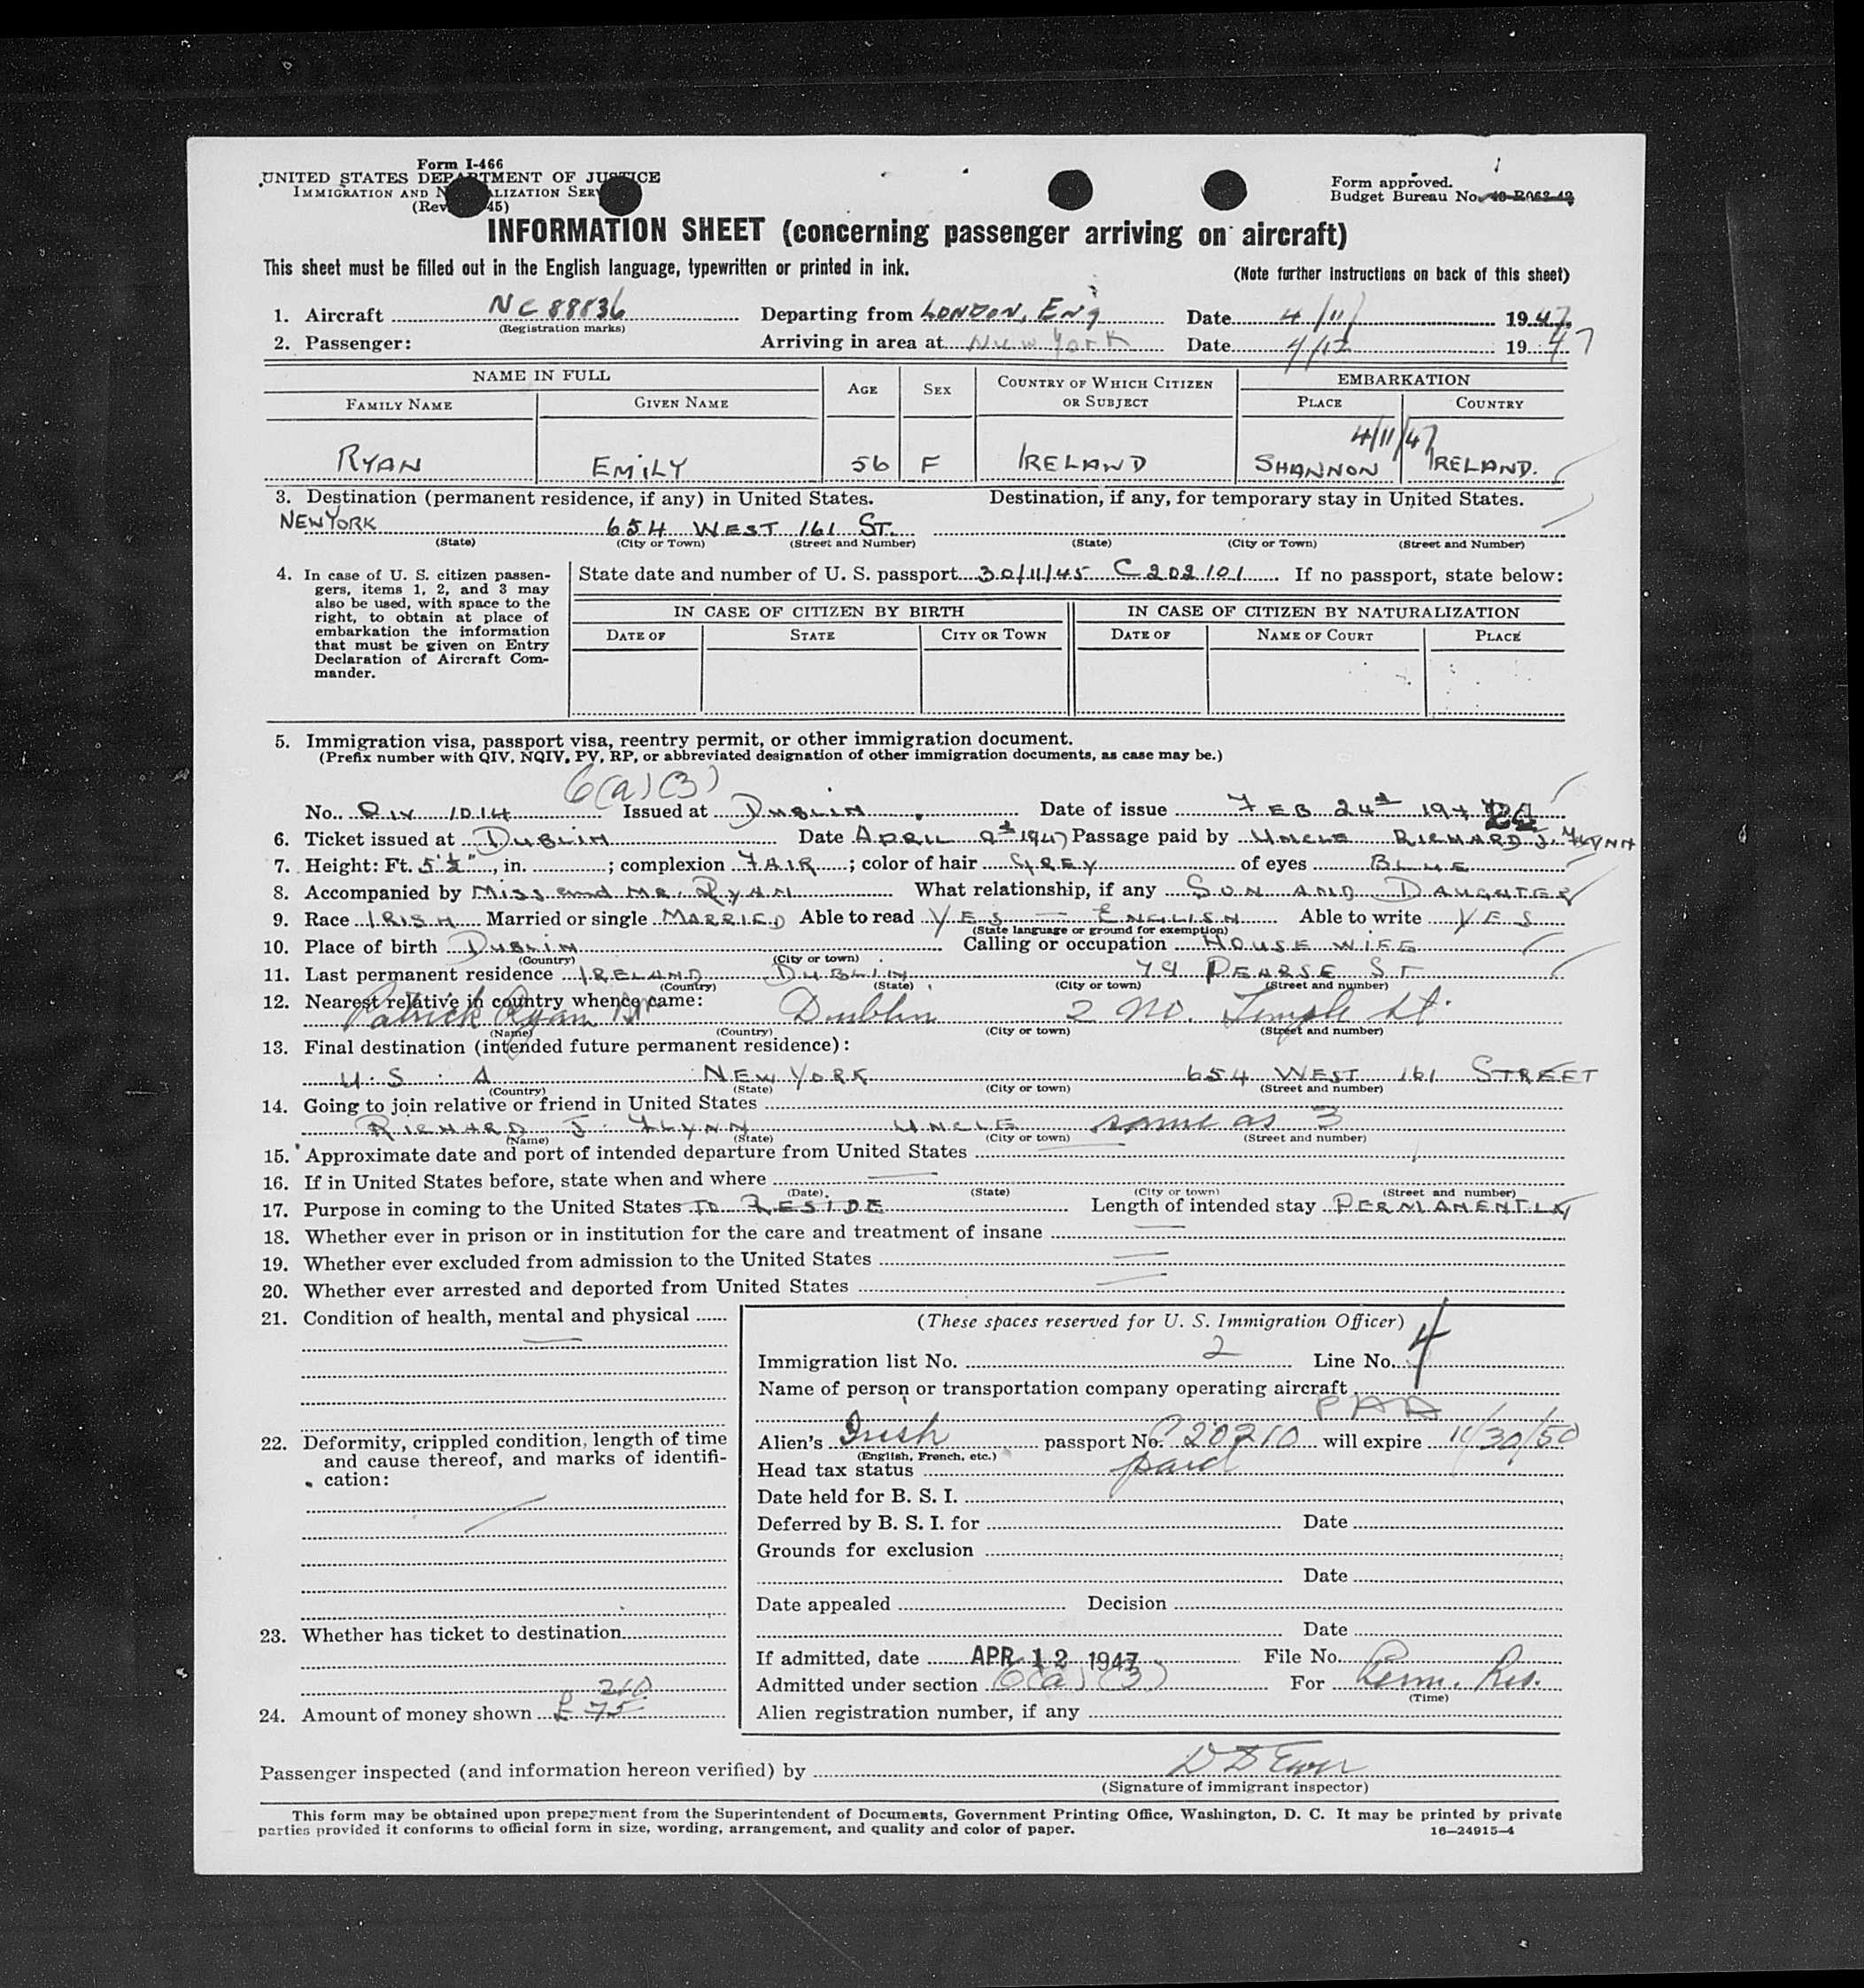 Form I-466
UNITED STATES DEPARTMENT OF JUSTICE
IMMIGRATION AND N ALIZATION SER
(Rev. 45)
Form approved.
Budget Bureau No.
INFORMATION SHEET (concerning passenger arriving on aircraft)
This sheet must be filled out in the English language, typewritten or printed in ink.
(Note further instructions on back of this sheet)
1. Aircraft NC 88836 Departing from LONDON, Eng Date 4/11/ 1947
(Registration marks)
2. Passenger: Arriving in area at New York Date 4/12 1947
NAME IN FULL AGE SEX COUNTRY OF WHICH CITIZEN OR SUBJECT EMBARKATION
FAMILY NAME GIVEN NAME PLACE COUNTRY
4/11/47
RYAN EMILY 56 F IRELAND SHANNON IRELAND.
3. Destination (permanent residence, if any) in United States. Destination, if any, for temporary stay in United States.
NEW YORK 654 WEST 161 ST.
(State) (City or Town) (Street and Number) (State) (City or Town) (Street and Number)
4. In case of U. S. citizen passen-
gers, items 1, 2, and 3 may
also be used, with space to the
right, to obtain at place of
embarkation the information
that must be given on Entry
Declaration of Aircraft Com-
mander.
State date and number of U. S. passport 30/11/45 C202101 If no passport, state below:
IN CASE OF CITIZEN BY BIRTH IN CASE OF CITIZEN BY NATURALIZATION
DATE OF STATE CITY OR TOWN DATE OF NAME OF COURT PLACE
5. Immigration visa, passport visa, reentry permit, or other immigration document.
(Prefix number with QIV, NQIV, PV, RP, or abbreviated designation of other immigration documents, as case may be.)
6(a)(3)
No. QIV 1014 Issued at DUBLIN Date of issue FEB 24 1947
6. Ticket issued at DUBLIN Date APRIL 1947 Passage paid by UNCLE RICHARD J. FLYNN
7. Height: Ft. 5'½", in. ; complexion FAIR ; color of hair GREY of eyes BLUE
8. Accompanied by MISS and MR. RYAN What relationship, if any SON AND DAUGHTER
9. Race IRISH Married or single MARRIED Able to read YES — ENGLISH Able to write YES
(State language or ground for exemption)
10. Place of birth DUBLIN Calling or occupation HOUSE WIFE
(Country) (City or town)
11. Last permanent residence IRELAND DUBLIN 79 PEARSE ST
(Country) (State) (City or town) (Street and number)
12. Nearest relative in country whence came:
Patrick Ryan Dublin 2 No. Temple St.
(Name) (Country) (City or town) (Street and number)
13. Final destination (intended future permanent residence):
U. S. A NEW YORK 654 WEST 161 STREET
(Country) (State) (City or town) (Street and number)
14. Going to join relative or friend in United States
RICHARD J. FLYNN UNCLE same as 3
(Name) (State) (City or town) (Street and number)
15. Approximate date and port of intended departure from United States —
16. If in United States before, state when and where —
(Date) (State) (City or town) (Street and number)
17. Purpose in coming to the United States TO RESIDE Length of intended stay PERMANENTLY
18. Whether ever in prison or in institution for the care and treatment of insane —
19. Whether ever excluded from admission to the United States —
20. Whether ever arrested and deported from United States —
21. Condition of health, mental and physical
—
22. Deformity, crippled condition, length of time
and cause thereof, and marks of identifi-
cation:
23. Whether has ticket to destination
210
24. Amount of money shown £ 75
(These spaces reserved for U. S. Immigration Officer)
Immigration list No. 2 Line No. 4
Name of person or transportation company operating aircraft
PAA
Alien's Irish passport No. C20210 will expire 11/30/50
(English, French, etc.)
Head tax status paid
Date held for B. S. I.
Deferred by B. S. I. for Date
Grounds for exclusion
Date
Date appealed Decision
Date
If admitted, date APR 12 1947 File No.
Admitted under section 6(a)(3) For Perm. Res.
(Time)
Alien registration number, if any
Passenger inspected (and information hereon verified) by
(Signature of immigrant inspector)
This form may be obtained upon prepayment from the Superintendent of Documents, Government Printing Office, Washington, D. C. It may be printed by private
parties provided it conforms to official form in size, wording, arrangement, and quality and color of paper.
16—24915-4